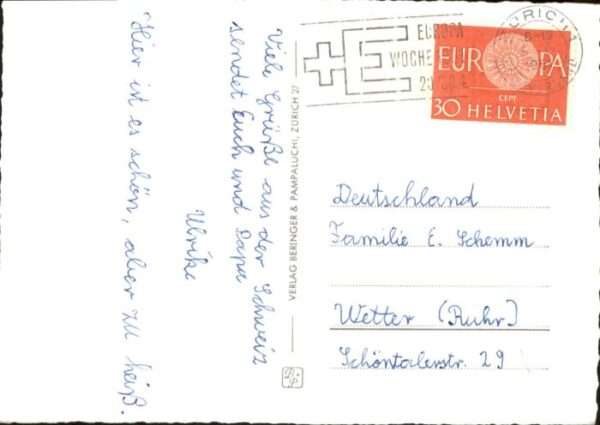 Viele Grüße aus der Schweiz
sendet Euch und Papa
Ulrike
"Hier ist es schön, aber zu heiß.
VERLAG BERINGER & PAMPALUCHI, ZÜRICH 27
EUROPA
WOCHE
ZÜRICH
EUROPA
CEPT
30 HELVETIA
Deutschland
Familie E. Schemm
Wetter (Ruhr)
Schöntalerstr. 29